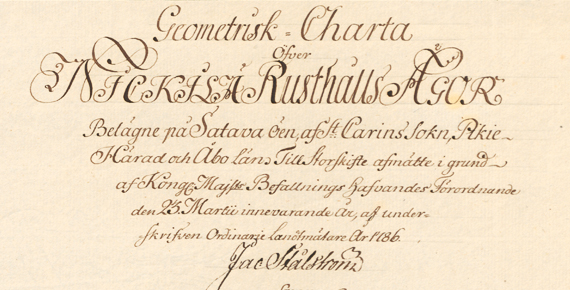 Geometrisk = Charta
Öfver
NICKILÄ Rusthålls ÄGOR
Belägne på Satava Öen, af St: Carins Sokn, Pikie-
Härad och Åbo Län, Till Storskifte afmätte i grund
af Kong: Maj:ts Befallnings Hafvandes Förordnande
den 23 Martii innevarande År, af under-
skrifven Ordinarie landtmätare År 1786.
Jac Stålström